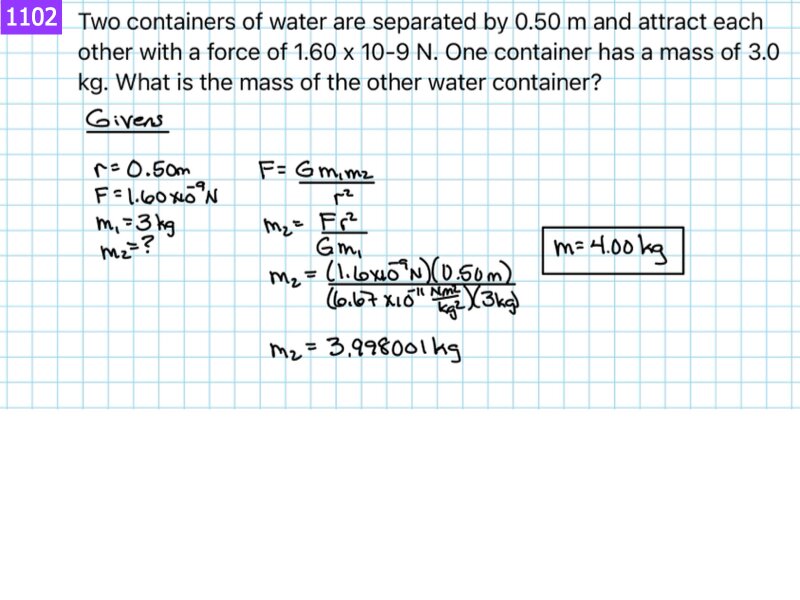 1102
Two containers of water are separated by 0.50 m and attract each
other with a force of 1.60 x 10-9 N. One container has a mass of 3.0
kg. What is the mass of the other water container?
Givens
r = 0.50m
F = 1.60 x10⁻⁹ N
m₁ = 3 kg
m₂ = ?
F = Gm₁m₂
r²
m₂ = Fr²
Gm₁
m₂ = (1.6x10⁻⁹N)(0.50m)
(6.67 x10⁻¹¹ Nm²/kg²)(3kg)
m₂ = 3.998001 kg
m = 4.00 kg